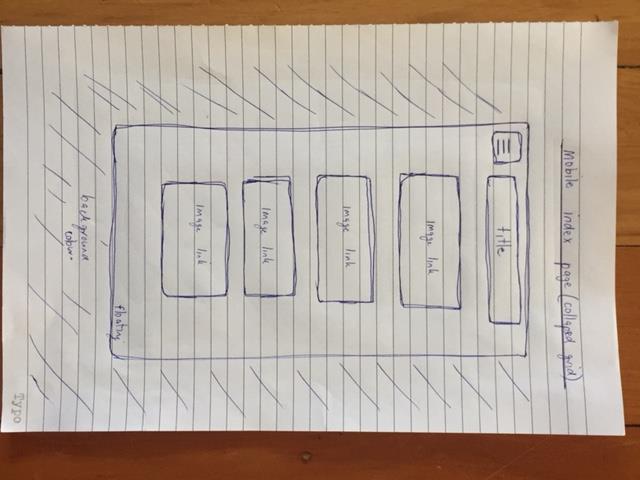 Mobile index page (collaped grid)
title
Image link
Image link
Image link
Image link
floating
background
colour
Typo